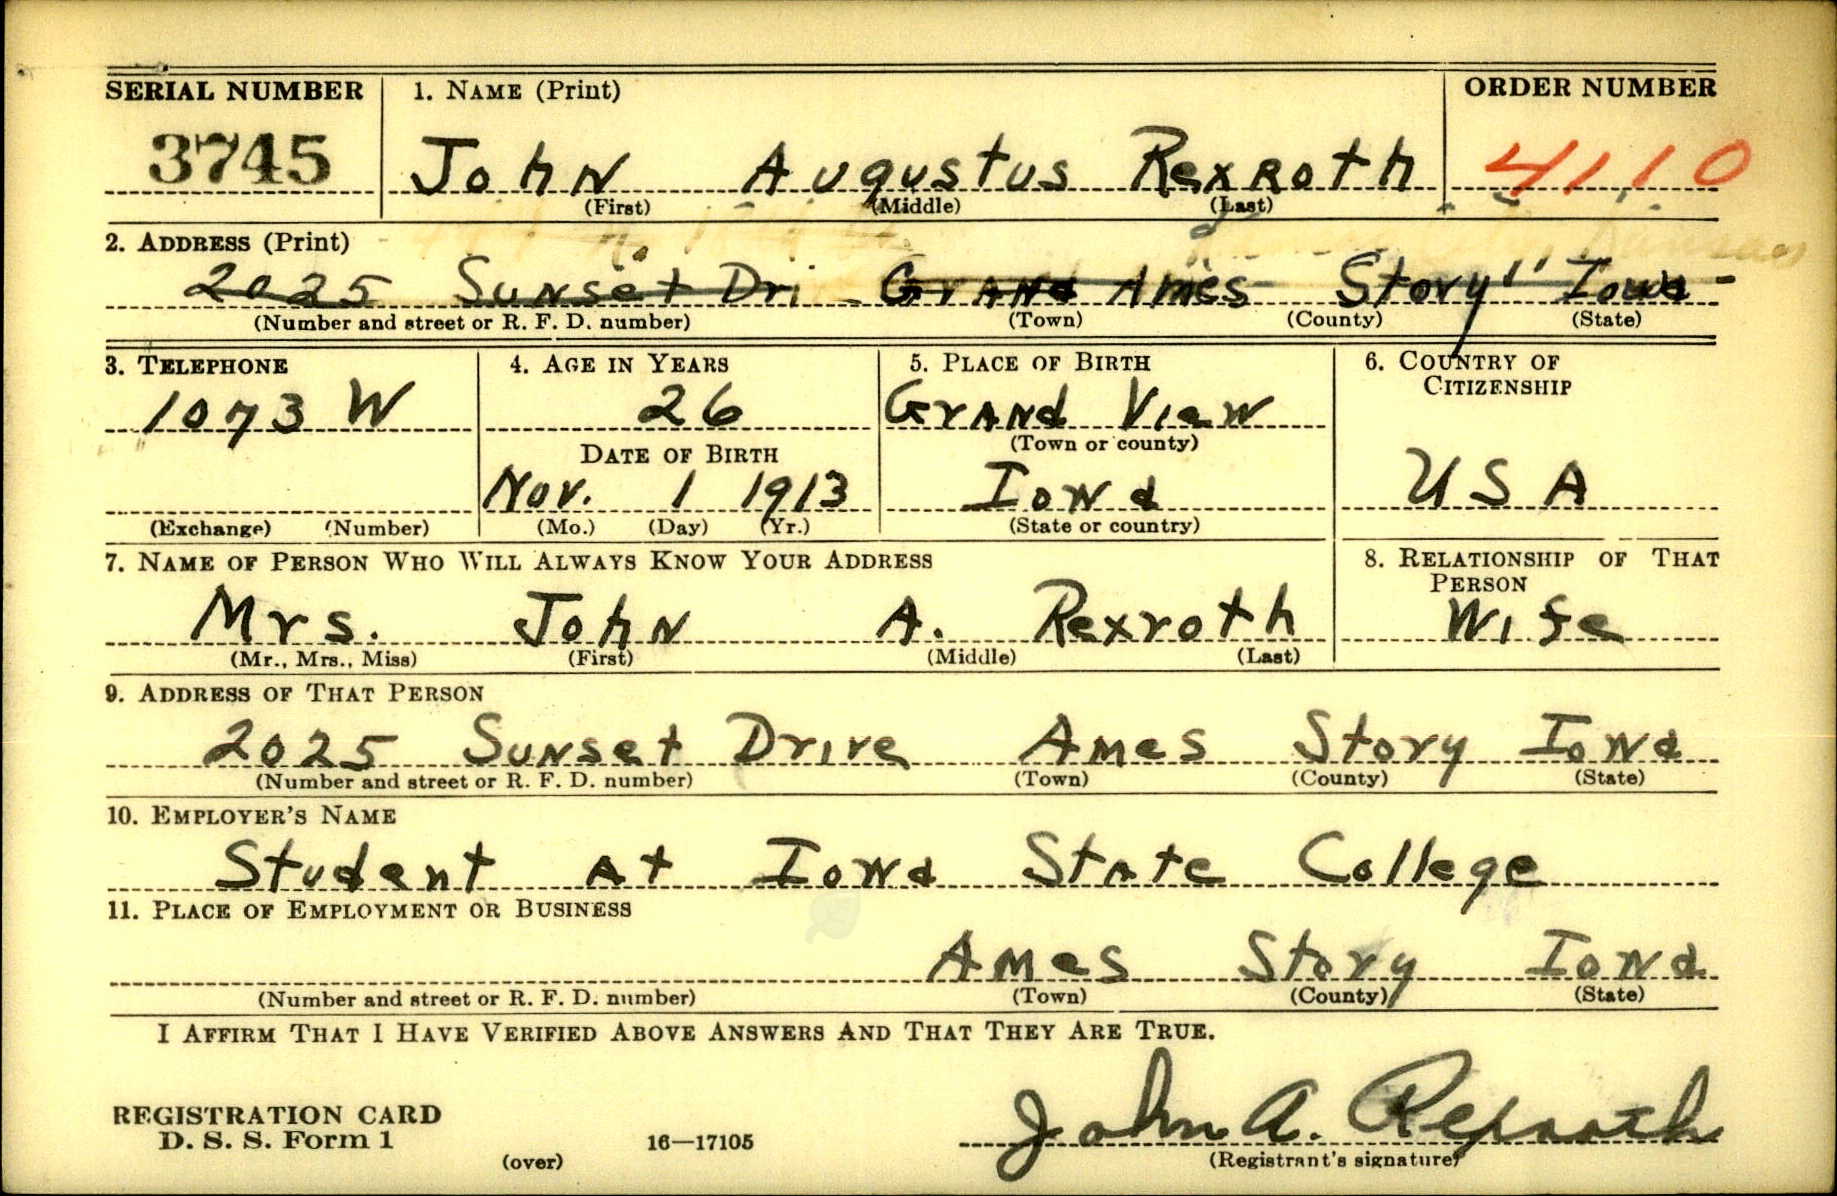 SERIAL NUMBER 1. NAME (Print) ORDER NUMBER
3745 John Augustus Rexroth 4110
(First) (Middle) (Last)
2. ADDRESS (Print)
2025 Sunset Dri Grand Ames Story Iowa
(Number and street or R. F. D. number) (Town) (County) (State)
3. TELEPHONE 4. AGE IN YEARS 5. PLACE OF BIRTH 6. COUNTRY OF
CITIZENSHIP
1073 W 26 Grand View
(Town or county)
DATE OF BIRTH
Nov. 1 1913 Iowa USA
(Exchange) (Number) (Mo.) (Day) (Yr.) (State or country)
7. NAME OF PERSON WHO WILL ALWAYS KNOW YOUR ADDRESS 8. RELATIONSHIP OF THAT
PERSON
Mrs. John A. Rexroth Wife
(Mr., Mrs., Miss) (First) (Middle) (Last)
9. ADDRESS OF THAT PERSON
2025 Sunset Drive Ames Story Iowa
(Number and street or R. F. D. number) (Town) (County) (State)
10. EMPLOYER'S NAME
Student at Iowa State College
11. PLACE OF EMPLOYMENT OR BUSINESS
Ames Story Iowa
(Number and street or R. F. D. number) (Town) (County) (State)
I AFFIRM THAT I HAVE VERIFIED ABOVE ANSWERS AND THAT THEY ARE TRUE.
REGISTRATION CARD
D. S. S. Form 1 16—17105 John A. Rexroth
(over) (Registrant's signature)